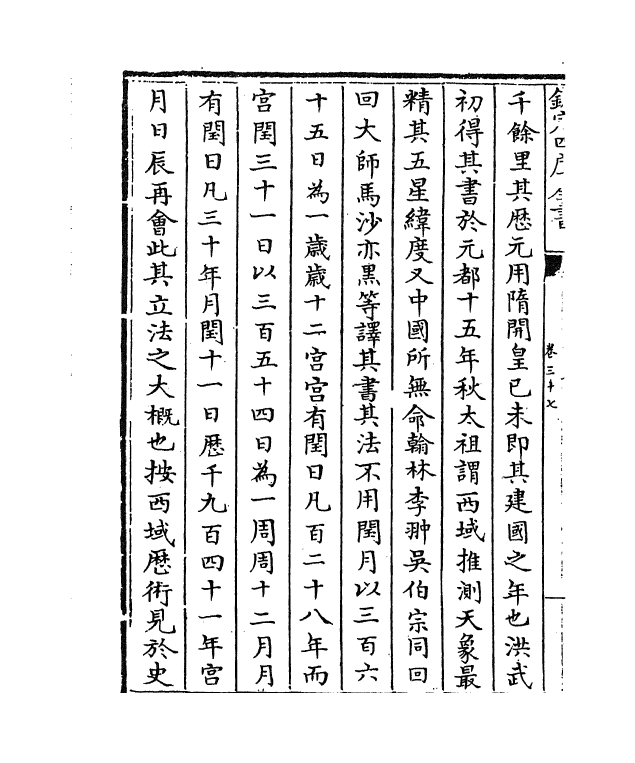 欽定四庫全書
卷三十七
千餘里其厯元用隋開皇已未即其建國之年也洪武
初得其書於元都十五年秋太祖謂西域推測天象最
精其五星緯度又中國所無命翰林李翀吳伯宗同回
回大師馬沙亦黑等譯其書其法不用閏月以三百六
十五日為一歲歲十二宮宮有閏日凡百二十八年而
宮閏三十一日以三百五十四日為一周周十二月月
有閏日凡三十年月閏十一日厯千九百四十一年宮
月日辰再會此其立法之大概也按西域厯術見於史